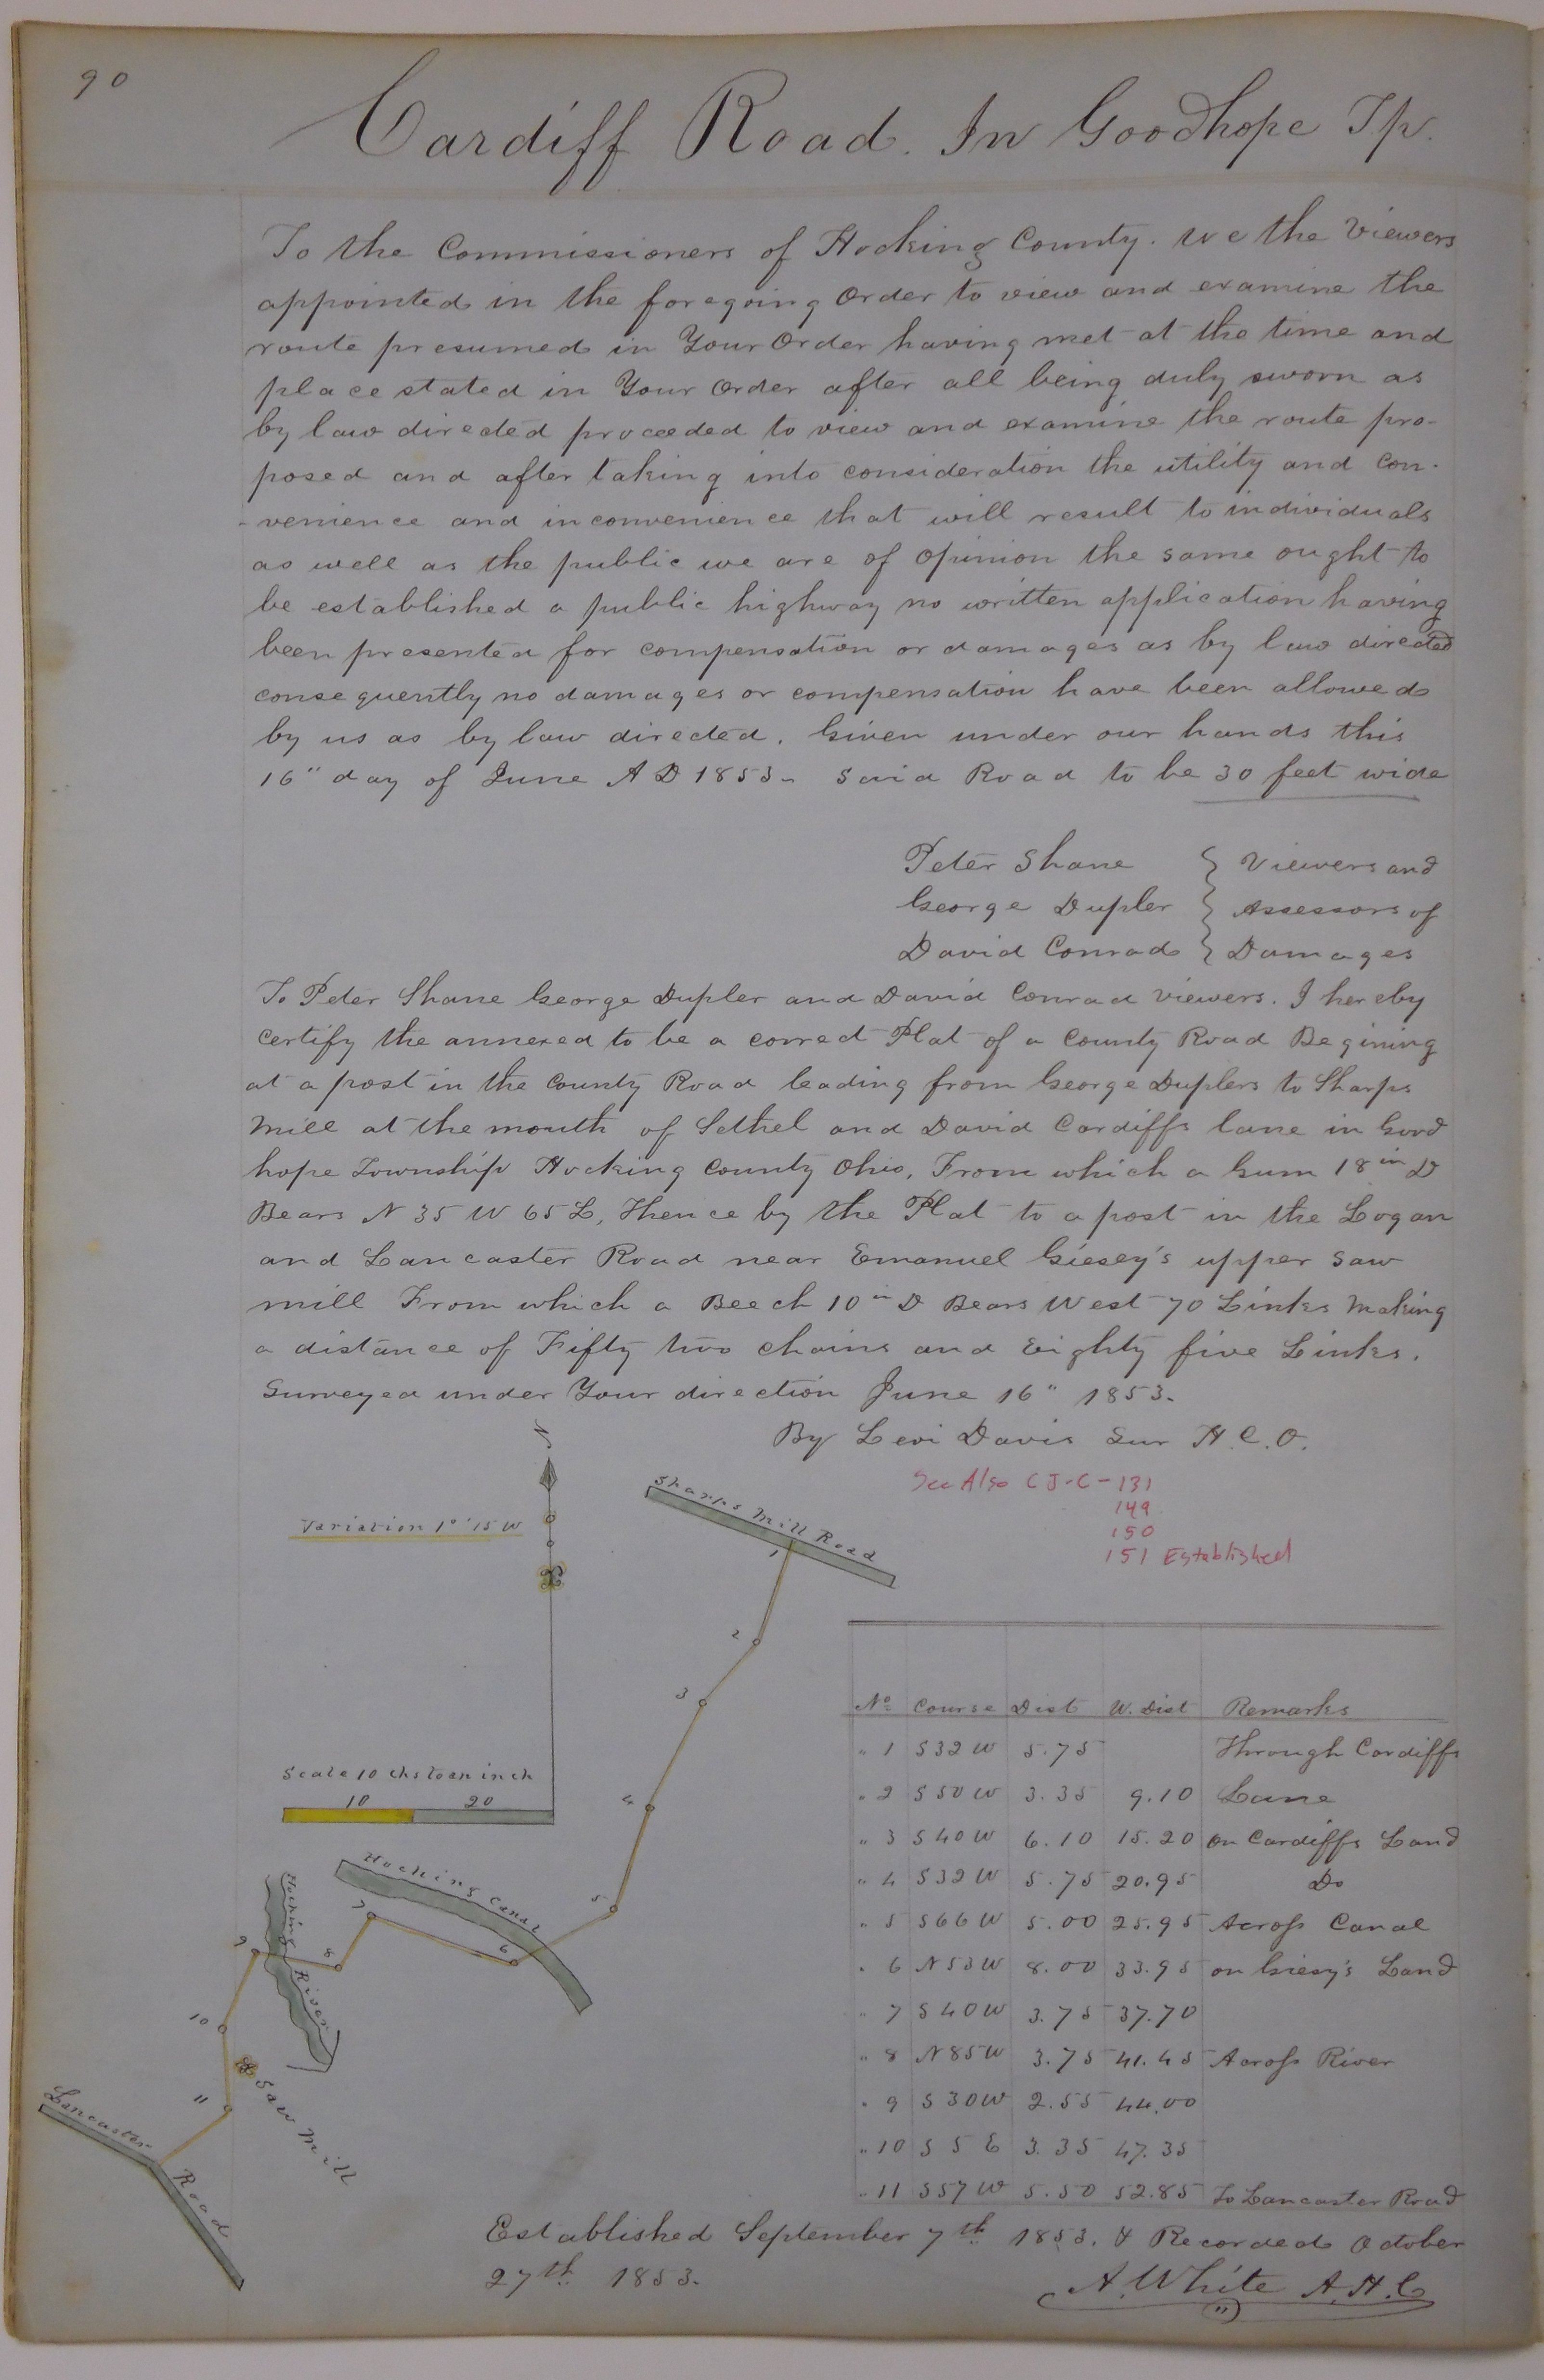 90
Cardiff Road. In Goodhope Tp.
To the Commissioners of Hocking County. We the Viewers
appointed in the foregoing Order to view and examine the
route presumed in Your Order having met at the time and
place stated in Your Order after all being duly sworn as
by law directed proceeded to view and examine the route pro-
posed and after taking into consideration the utility and con-
-venience and inconvenience that will result to individuals
as well as the public we are of opinion the same ought to
be established a public highway no written application having
been presented for compensation or damages as by law directed
consequently no damages or compensation have been allowed
by us as by law directed. Given under our hands this
16" day of June A D 1853. Said Road to be 30 feet wide
Peter Shane } Viewers and
George Dupler } Assessors of
David Conrad } Damages
To Peter Shane George Dupler and David Conrad Viewers. I hereby
Certify the annexed to be a correct Plat of a County Road Begining
at a post in the County Road leading from George Duplers to Sharps
Mill at the mouth of Sethel and David Cardiffs lane in Good
hope Township Hocking County Ohio, From which a Gum 18 in D
Bears N 35 W 65 L, Thence by the Plat to a post in the Logan
and Lancaster Road near Emanuel Giesey's upper Saw
mill From which a Beech 10 in D Bears West 70 Links Making
a distance of Fifty two chains and Eighty five Links.
Surveyed under Your direction June 16" 1853.
By Levi Davis Sur H.C.O.
See Also CJ-C-131
149
150
151 Established
Variation 1° 15 W
Sharps Mill Road
1
2
3
4
5
6
7
8
9
10
11
Scale 10 chs to an inch
10 20
Hocking Canal
Hocking River
Saw Mill
Lancaster Road
No Course Dist W. Dist Remarks
" 1 S 32 W 5.75 Through Cardiffs
" 2 S 50 W 3.35 9.10 Lane
" 3 S 40 W 6.10 15.20 on Cardiffs Land
" 4 S 32 W 5.75 20.95 Do
" 5 S 66 W 5.00 25.95 Across Canal
" 6 N 53 W 8.00 33.95 on Giesy's Land
" 7 S 40 W 3.75 37.70
" 8 N 85 W 3.75 41.45 Across River
" 9 S 30 W 2.55 44.00
" 10 S 5 E 3.35 47.35
" 11 S 57 W 5.50 52.85 To Lancaster Road
Established September 7th 1853. & Recorded October
27th 1853.
A. White A.H.C